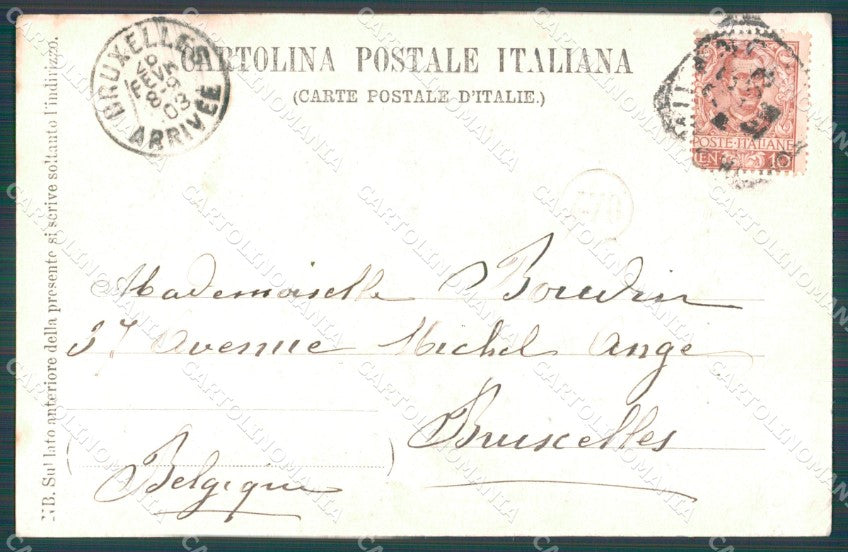 CARTOLINA POSTALE ITALIANA
(CARTE POSTALE D'ITALIE.)
BRUXELLES
8 FEVR
03
ARRIVÉE
POSTE·ITALIANE
10
NB. Sul lato anteriore della presente si scrive soltanto l'indirizzo.
Mademoiselle Bourdin
37 Avenue Michel Ange
Bruxelles
Belgique
CARTOLINOMANIA